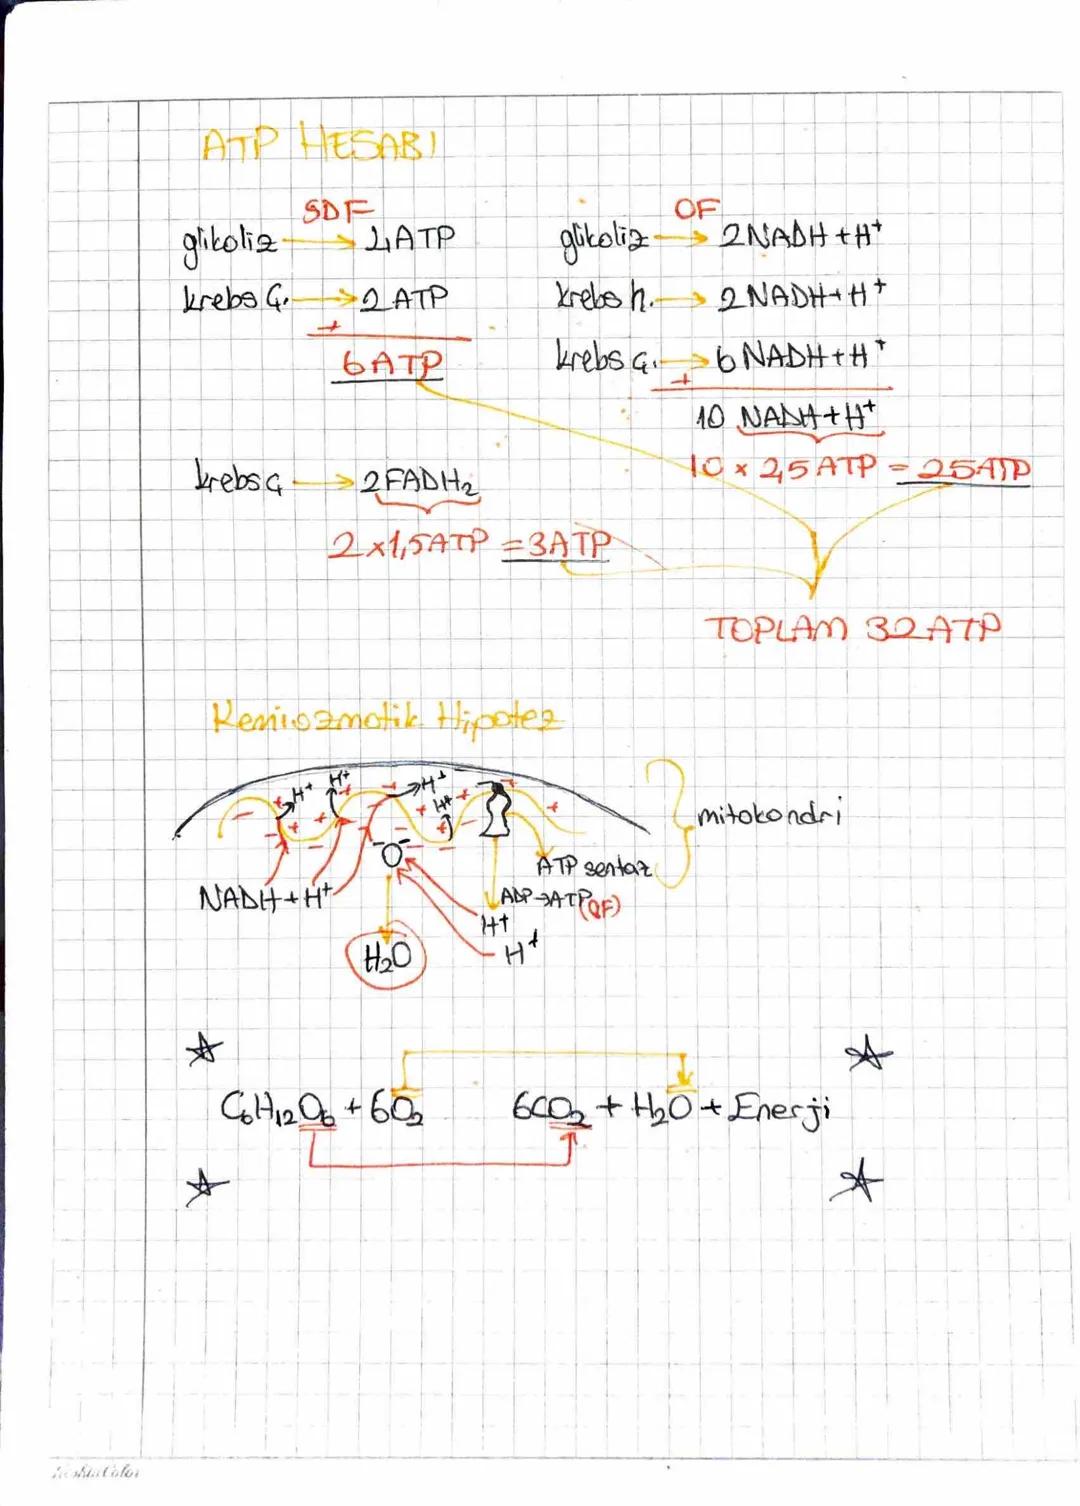 ATP HESABI
SDF
glikoliz → 4ATP
krebs Ç. → 2 ATP
+
6 ATP
OF
glikoliz → 2NADH + H⁺
krebs h. → 2 NADH + H⁺
krebs ç. → 6 NADH + H⁺
+
10 NADH + H⁺
10 x 2,5 ATP = 25ATP
krebs ç → 2FADH₂
2 x 1,5ATP = 3ATP
TOPLAM 32 ATP
Kemiozmotik Hipotez
H⁺ H⁺ H⁺ H⁺
mitokondri
O⁻⁻
ATP sentaz
NADH + H⁺
ADP→ATP (OF)
H⁺
H⁺
H₂O
C₆H₁₂O₆ + 6O₂ 6CO₂ + H₂O + Enerji